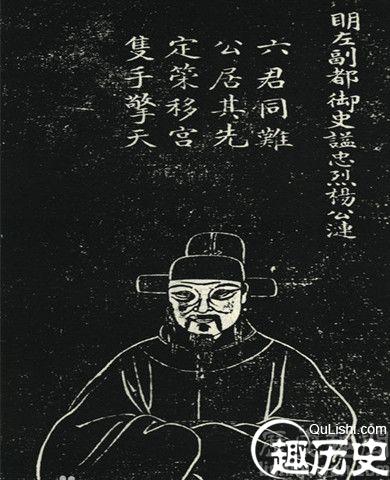 明左副都御史諡忠烈楊公漣
六君同難
公居其先
定策移宮
隻手擎天
QuLishi.com
趣历史